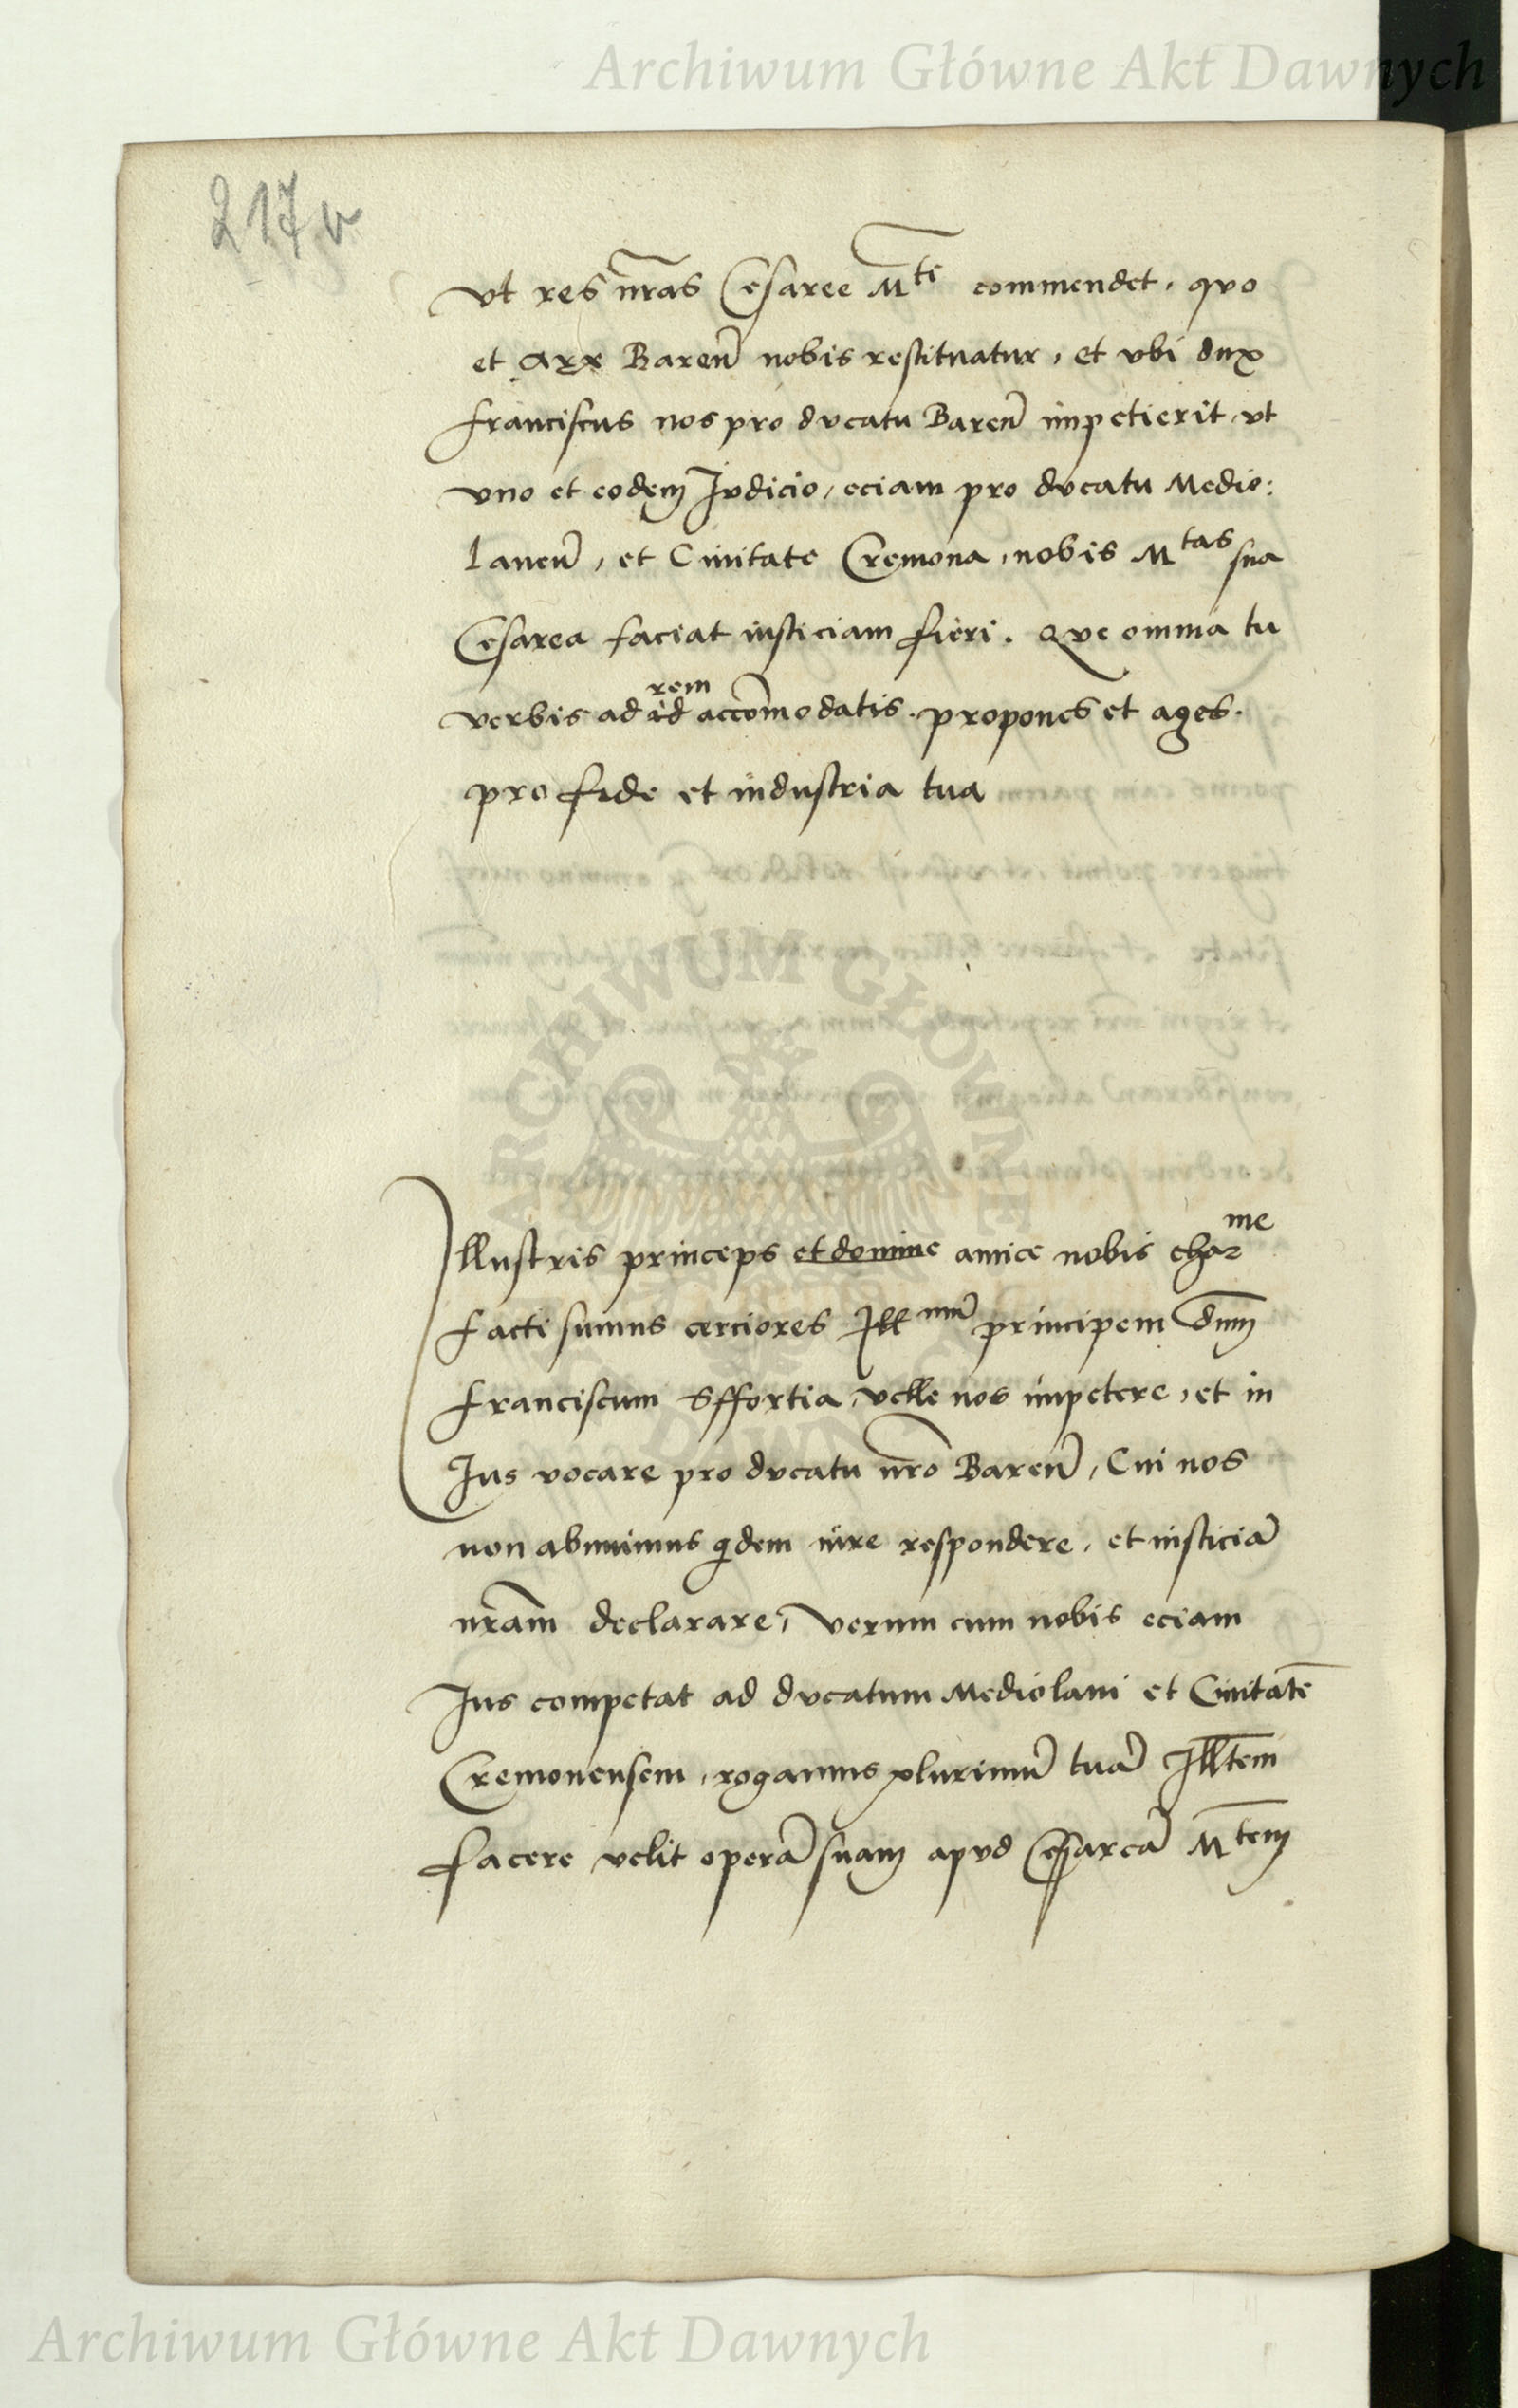 Archiwum Główne Akt Dawnych
217v
vt res nr̃as Cesaree M^ti commendet, quo
et Arx Bareñ nobis restituatur, et vbi dux
franciscus nos pro ducatu Bareñ impetierit, vt
vno et eodem Judicio, eciam pro ducatu Medio:
laneñ, et Ciuitate Cremona, nobis M^tas sua
Cesarea faciat iusticiam fieri. Que omnia tu
rem
verbis ad id accom̃odatis. propones et ages.
pro fide et industria tua
Illustris princeps et domine amice nobis char^me
facti sumus cerciores Ill^mũ principem dñm
franciscum Sffortia, velle nos impetere, et in
Jus vocare pro ducatu nr̃o Bareñ, Cui nos
non abnuimus qͥdem iure respondere, et iusticiã
nr̃am declarare, Verum cum nobis eciam
Jus competat ad ducatum Mediolani et Ciuitatẽ
Cremonensem, rogamus plurimũ tuã Ill̃tem
facere velit operã suam apud Cesareã M^tem
ARCHIWUM GŁÓWNE AKT DAWNYCH
Archiwum Główne Akt Dawnych